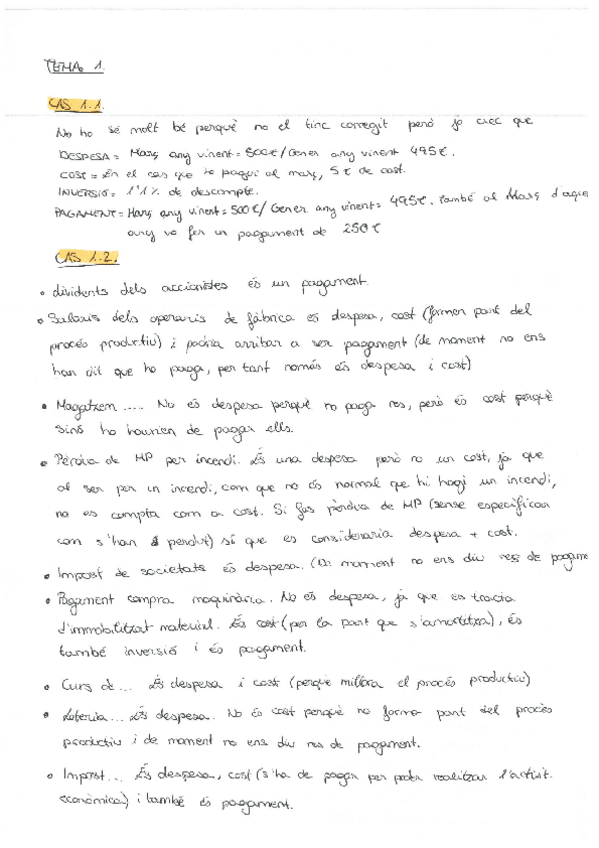 TEMA 1.
CAS 1.1.
No ho sé molt bé perquè no el tinc corregit però jo crec que
DESPESA = Març any vinent = 500€ / Gener any vinent 495€.
COST = En el cas que ho pagui al març, 5€ de cost.
INVERSIÓ = 1'1% de descompte.
PAGAMENT = Març any vinent = 500€ / Gener any vinent = 495€. També al Març d'aques
any va fer un pagament de 250€
CAS 1.2.
• dividents dels accionistes és un pagament.
• Salaris dels operaris de fàbrica és despesa, cost (formen part del
procés productiu) i podria arribar a ser pagament (de moment no ens
han dit que ho paga, per tant només és despesa i cost)
• Magatzem ..... No és despesa perquè no paga res, però és cost perquè
sinó ho haurien de pagar ells.
• Pèrdua de MP per incendi. És una despesa però no un cost, ja que
al ser per un incendi, com que no és normal que hi hagi un incendi,
no es compta com a cost. Si fos pèrdua de MP (sense especificar
com s'han perdut) sí que es consideraria despesa + cost.
• Impost de societats és despesa. (De moment no ens diu res de pagame
• Pagament compra maquinària. No és despesa, ja que es tracta
d'immobilitzat material. És cost (per la part que s'amortitza), és
també inversió i és pagament.
• Curs de ... És despesa i cost (perquè millora el procés productiu)
• Loteria ... És despesa. No és cost perquè no forma part del procés
productiu i de moment no ens diu res de pagament.
• Impost ... És despesa, cost (s'ha de pagar per poder realitzar l'activit.
econòmica) i també és pagament.